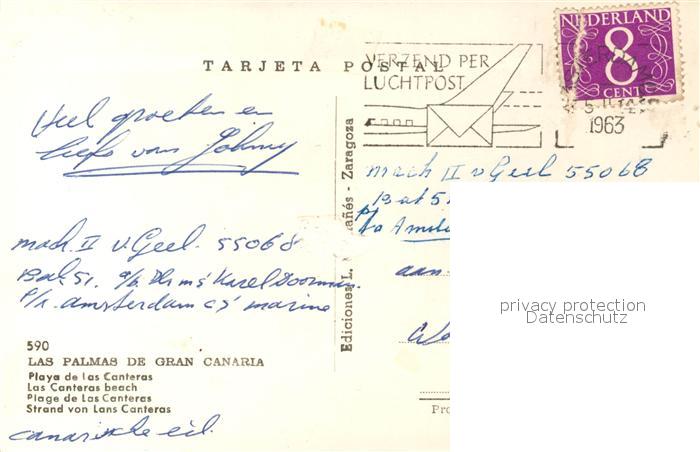 TARJETA POSTAL
NEDERLAND
8
CENT
VERZEND PER
LUCHTPOST
1963
Veel groeten en
liefs van Johny
mach II v Geel 55068
Bat 51
p/a Amste
aan
mach. II v. Geel. 55068
Bat. 51. a/b. Hr ms Karel Doorman.
p/a. amsterdam c/s marine
Ediciones L. M añés - Zaragoza
590
LAS PALMAS DE GRAN CANARIA
Playa de Las Canteras
Las Canteras beach
Plage de Las Canteras
Strand von Lans Canteras
canarische eil.
Pro
privacy protection
Datenschutz